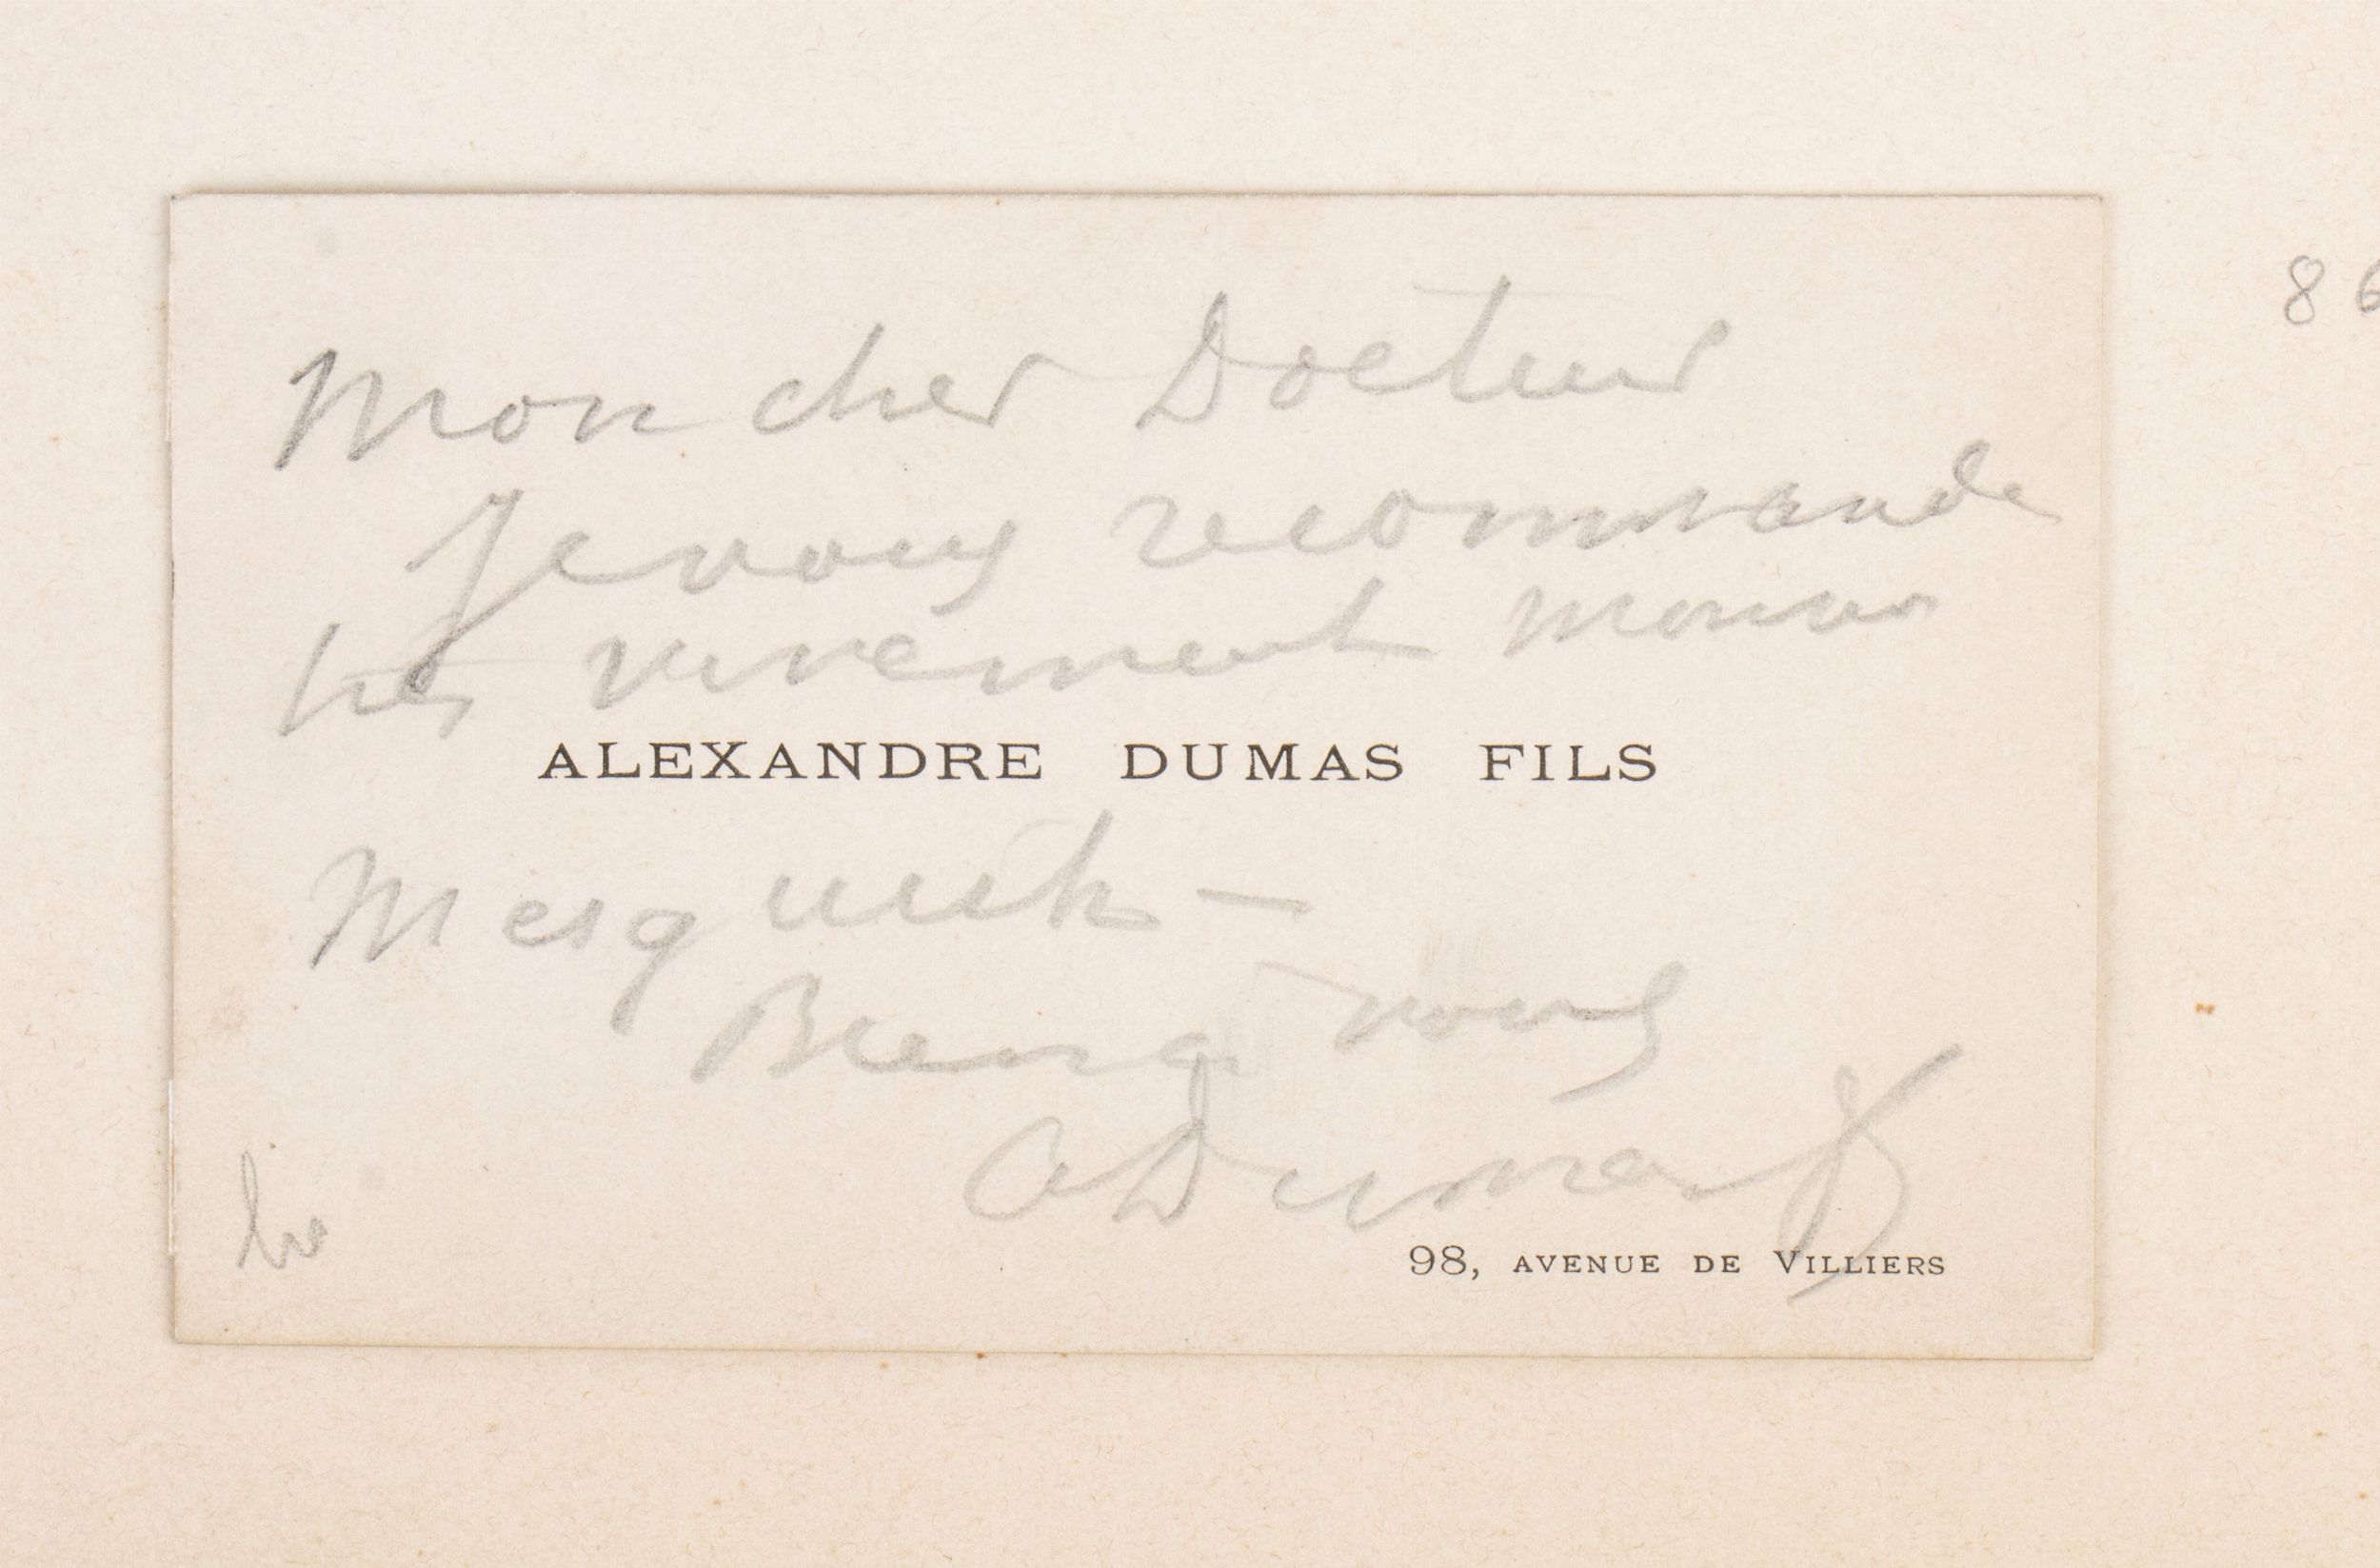 Mon cher Docteur
Je vous recommande
très vivement
ALEXANDRE DUMAS FILS
Bien à vous
ADumas f
98, AVENUE DE VILLIERS
8 6